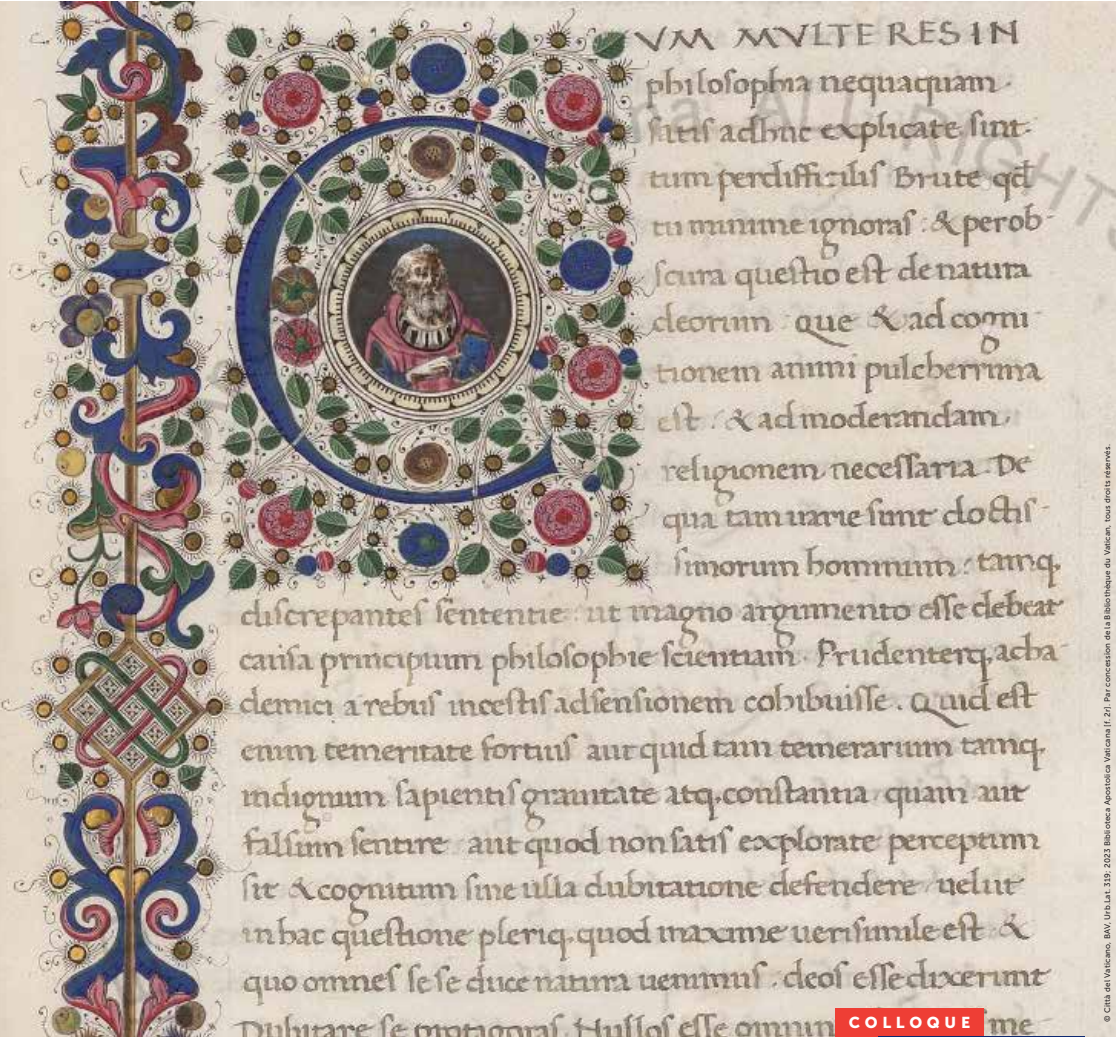 CVM MVLTE RES IN
philosophia nequaquam
satis adhuc explicate sint.
tum perdifficilis Brute qd
tu minime ignoras : & perob-
scura questio est de natura
deorum que & ad cogni-
tionem animi pulcherrima
est . & ad moderandam
religionem necessaria. De
qua tam uarie sunt doctis-
simorum hominum : tamq.
discrepantes sententie : ut magno argumento esse debeat
causa principium philosophie scientiam. Prudenterq. acha-
demici a rebus incestis adsensionem cohibuisse. Quid est
enim temeritate fortius aut quid tam temerarium tamq.
indignum sapientis grauitate atq. constantia quam aut
falsum sentire aut quod non satis explorate perceptum
sit & cognitum sine ulla dubitatione defendere uelut
in hac questione pleriq. quod maxime uerisimile est &
quo omnes sese duce natura uenimus . deos esse dixerunt
Dubitare se protagoras. Nullos esse omnin me-
ALL RIGHTS
COLLOQUE
© Città del Vaticano, BAV, Urb.Lat. 319; 2023 Biblioteca Apostolica Vaticana (f. 2r). Par concession de la Bibliothèque du Vatican, tous droits réservés.